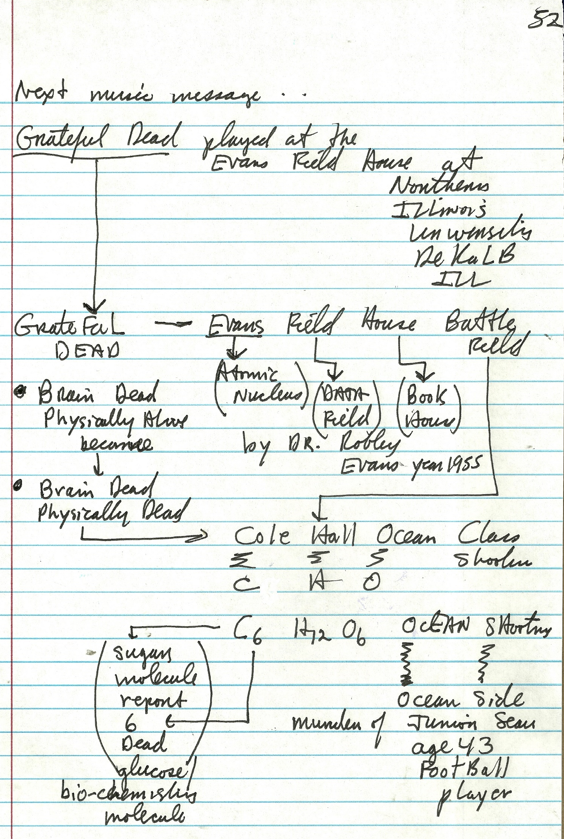 52
Next music message . .
Grateful Dead played at the
Evans Field House at
Northern
ILLinois
University
DeKaLB
ILL
GrateFuL — Evans Field House Battle
DEAD Field
(Atomic Nucleus) (DATA Field) (Book House)
• Brain Dead
Physically Alive
because
by DR. Robley
Evans - year 1955
• Brain Dead
Physically Dead
Cole Hall Ocean Class
Shooter
C H O
C6 H12 O6 OCEAN Shooting
(sugar
molecule
report
6
Dead
glucose)
bio-chemistry
molecule
Ocean Side
murder of Junior Seau
age 43
FootBall
player